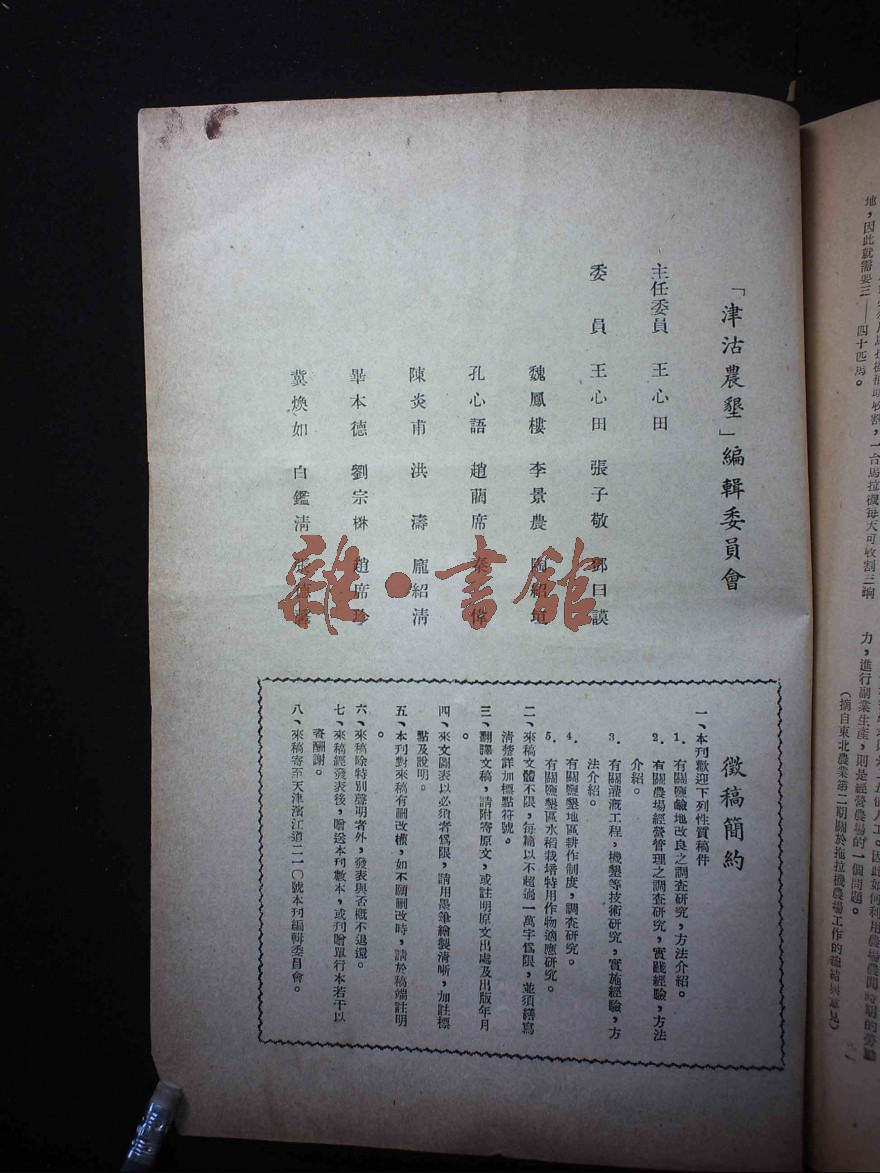 「津沽農墾」編輯委員會
主任委員 王心田
委員 王心田 張子敬 鄧日謨
魏鳳樓 李景農 陶紹垣
孔心語 趙繭席 秦偉
陳炎甫 洪濤 龐紹清
畢本德 劉宗楙 趙席珍
冀煥如 白鑑清
雜·書館
徵稿簡約
一、本刊歡迎下列性質稿件
1. 有關鹽鹼地改良之調查研究,方法介紹。
2. 有關農場經營管理之調查研究,實踐經驗,方法
介紹。
3. 有關灌溉工程,機墾等技術研究,實施經驗,方
法介紹。
4. 有關鹽墾地區耕作制度,調查研究。
5. 有關鹽墾區水稻栽培特用作物適應研究。
二、來稿文體不限,每篇以不超過一萬字為限,並須繕寫
清楚詳加標點符號。
三、翻譯文稿,請附寄原文,或註明原文出處及出版年月
。
四、來文圖表以必須者為限,請用墨筆繪製清晰,加註標
點及說明。
五、本刊對來稿有刪改權,如不願刪改時,請於稿端註明
。
六、來稿除特別聲明者外,發表與否概不退還。
七、來稿經發表後,贈送本刊數本,或刊贈單行本若干以
資酬謝。
八、來稿寄至天津濱江道二一〇號本刊編輯委員會。
一台馬拉機每天可收割三晌
地,因此就需要三——四十匹馬。
因此如何利用農場農閒時期的勞動
力,進行副業生產,則是經營農場的一個問題。
(摘自東北農業第二期關於拖拉機農場工作的總結與意見)